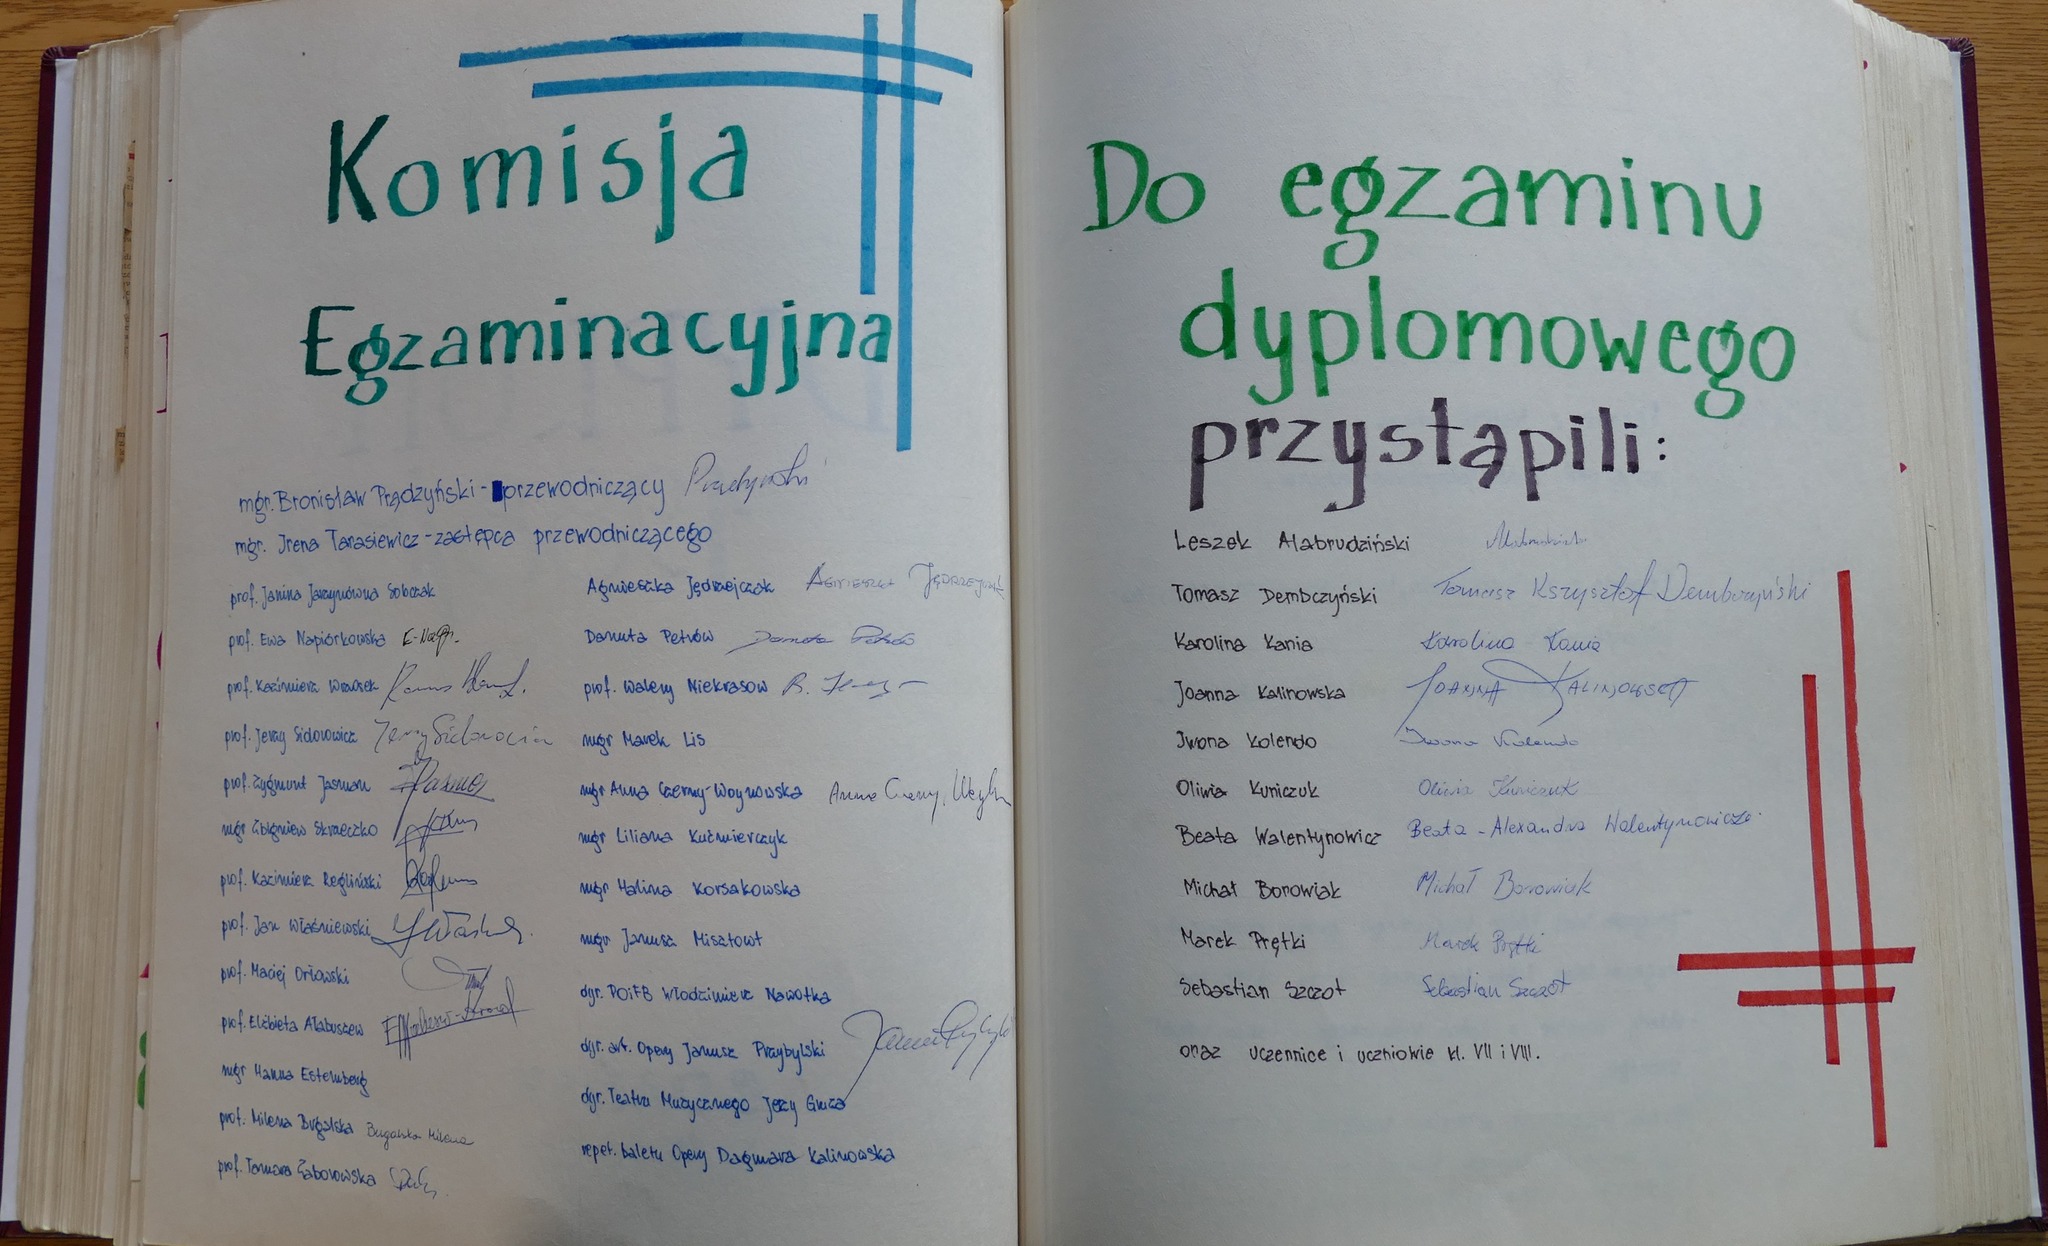 Komisja
Egzaminacyjna
mgr. Bronisław Prądzyński - przewodniczący
mgr. Irena Tarasiewicz - zastępca przewodniczącego
prof. Janina Jarzynówna Sobczak
prof. Ewa Napiórkowska E-Nap.
prof. Kazimierz Wrzosek
prof. Jerzy Sidorowicz Jerzy Sidorowicz
prof. Zygmunt Jasman
mgr Zbigniew Skrzeczko
prof. Kazimierz Regliński
prof. Jan Właśniewski
prof. Maciej Orłowski
prof. Elżbieta Ałabuszew
mgr Hanna Estemberg
prof. Milena Bugalska Bugalska Milena
prof. Tamara Zaborowska
Agnieszka Jędrzejczak Agnieszka Jędrzejczak
Danuta Petrów Danuta Petrów
prof. Walery Niekrasow
mgr Marek Lis
mgr Anna Czerny-Woynowska Anna
mgr Liliana Kuźmierczyk
mgr Halina Korsakowska
mgr Janusz Misztowt
dyr. POiFB Włodzimierz Nawotka
dyr. art. Opery Janusz Przybylski
dyr. Teatru Muzycznego Jerzy Gruza
repet. baletu Opery Dagmara Kalinowska
Do egzaminu
dyplomowego
przystąpili:
Leszek Alabrudziński
Tomasz Dembczyński Tomasz Krzysztof Dembczyński
Karolina Kania Karolina Kania
Joanna Kalinowska JOANNA KALINOWSKA
Iwona Kolendo Iwona Kolendo
Oliwia Kuniczuk Oliwia Kuniczuk
Beata Walentynowicz Beata - Alexandra Walentynowicz
Michał Borowiak Michał Borowiak
Marek Prętki Marek Prętki
Sebastian Szczot Sebastian Szczot
oraz uczennice i uczniowie kl. VII i VIII.